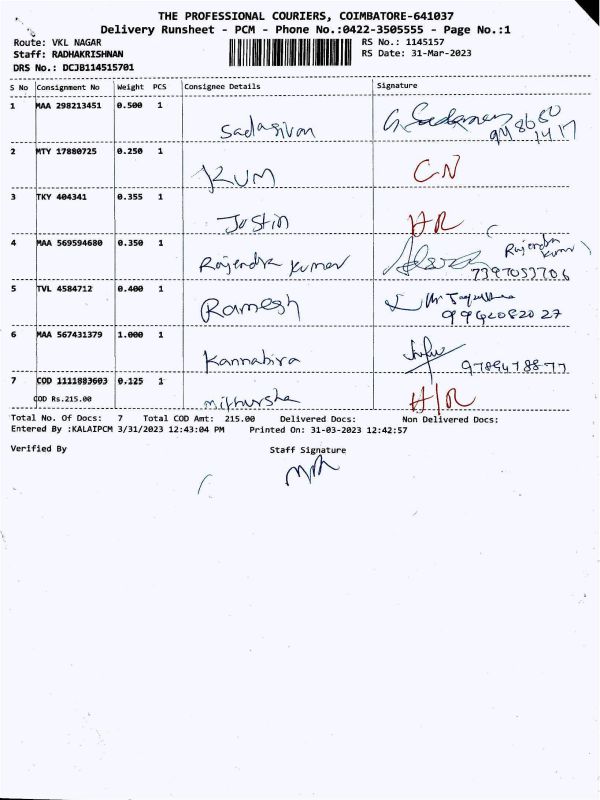 THE PROFESSIONAL COURIERS, COIMBATORE-641037
Delivery Runsheet - PCM - Phone No.:0422-3505555 - Page No.:1
Route: VKL NAGAR RS No.: 1145157
Staff: RADHAKRISHNAN RS Date: 31-Mar-2023
DRS No.: DCJB114515701
S No Consignment No Weight PCS Consignee Details Signature
1 MAA 298213451 0.500 1
Sadasivam
2 MTY 17880725 0.250 1
KUM CN
3 TKY 404341 0.355 1
Justin HR
4 MAA 569594680 0.350 1
Rajendra kumar Rajendra kumar
7397053706
5 TVL 4584712 0.400 1
Ramesh
9942082027
6 MAA 567431379 1.000 1
Kannabira 9789478877
7 COD 1111883603 0.125 1
COD Rs.215.00 mithursha H/R
Total No. Of Docs: 7 Total COD Amt: 215.00 Delivered Docs: Non Delivered Docs:
Entered By :KALAIPCM 3/31/2023 12:43:04 PM Printed On: 31-03-2023 12:42:57
Verified By Staff Signature